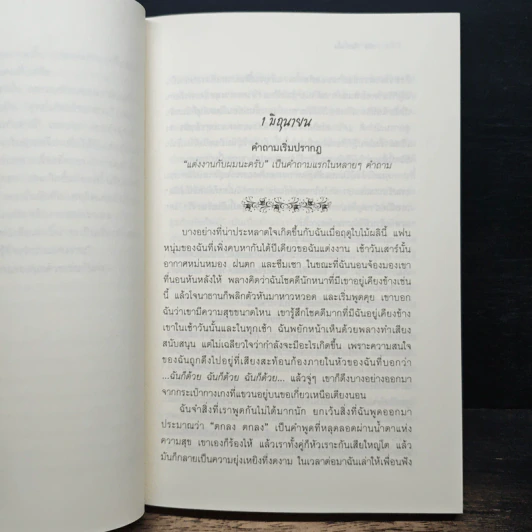 1 มิถุนายน
คำถามเริ่มปรากฏ
"แต่งงานกับผมนะครับ" เป็นคำถามแรกในหลายๆ คำถาม
บางอย่างที่น่าประหลาดใจเกิดขึ้นกับฉันเมื่อฤดูใบไม้ผลินี้ แฟน
หนุ่มของฉันที่เพิ่งคบหากันได้ปีเดียวขอฉันแต่งงาน เช้าวันเสาร์นั้น
อากาศหม่นหมอง ฝนตก และซึมเซา ในขณะที่ฉันนอนจ้องมองเขา
ที่นอนหันหลังให้ พลางคิดว่าฉันโชคดีนักหนาที่มีเขาอยู่เคียงข้างเช่น
นี้ แล้วโจนาธานก็พลิกตัวหันมาหาวหวอด และเริ่มพูดคุย เขาบอก
ฉันว่าเขามีความสุขขนาดไหน เขารู้สึกโชคดีมากที่มีฉันอยู่เคียงข้าง
เขาในเช้าวันนั้นและในทุกเช้า ฉันพยักหน้าเห็นด้วยพลางทำเสียง
สนับสนุน แต่ไม่เฉลียวใจว่ากำลังจะมีอะไรเกิดขึ้น เพราะความสนใจ
ของฉันถูกดึงไปอยู่ที่เสียงสะท้อนก้องภายในหัวของฉันที่บอกว่า
...ฉันก็ด้วย ฉันก็ด้วย ฉันก็ด้วย... แล้วจู่ๆ เขาก็ดึงบางอย่างออกมา
จากกระเป๋ากางเกงที่แขวนอยู่บนขอเกี่ยวเหนือเตียงนอน
ฉันจำสิ่งที่เราพูดกันไม่ได้มากนัก ยกเว้นสิ่งที่ฉันพูดออกมา
ประมาณว่า "ตกลง ตกลง" เป็นคำพูดที่หลุดลอดผ่านน้ำตาแห่ง
ความสุข เขาเองก็ร้องไห้ แล้วเราทั้งคู่ก็หัวเราะกันเสียใหญ่โต แล้ว
มันก็กลายเป็นความยุ่งเหยิงที่งดงาม ในเวลาต่อมาฉันเล่าให้เพื่อนฟัง